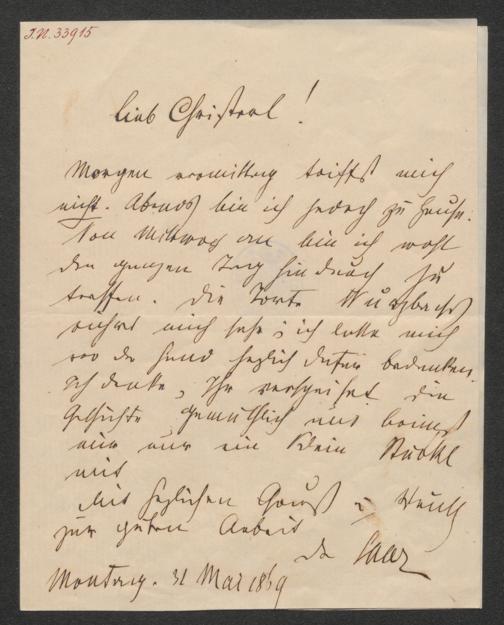 J.N. 33915
Lieb Christerl!
Morgen vormittag triffst mich
nicht. Abends bin ich jedoch zu Hause.
Von Mittwoch an bin ich wohl
den ganzen Tag hindurch zu
treffen. Die Torte Wurzbachs
mich sehr; ich lasse mich
herzlich dafür bedanken.
Ich denke, Ihr verspeiset die
Geschichte gemütlich und bringst
mir nur ein klein Stückl
mit
Mit herzlichen Gruß u. Wunsch
zur guten Arbeit
Montag. 31 Mai 1869